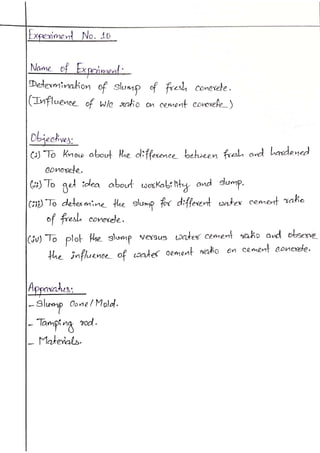 Experiment No. 10
Name of Experiment:
Determination of slump of fresh concrete.
(Influence of w/c ratio on cement concrete)
Objectives:
(i) To know about the difference between fresh and hardened
concrete.
(ii) To get idea about workability and slump.
(iii) To determine the slump for different water cement ratio
of fresh concrete.
(iv) To plot the slump versus water cement ratio and observe
the influence of water cement ratio on cement concrete.
Apparatus:
- Slump Cone/Mold.
- Tamping rod.
- Materials.